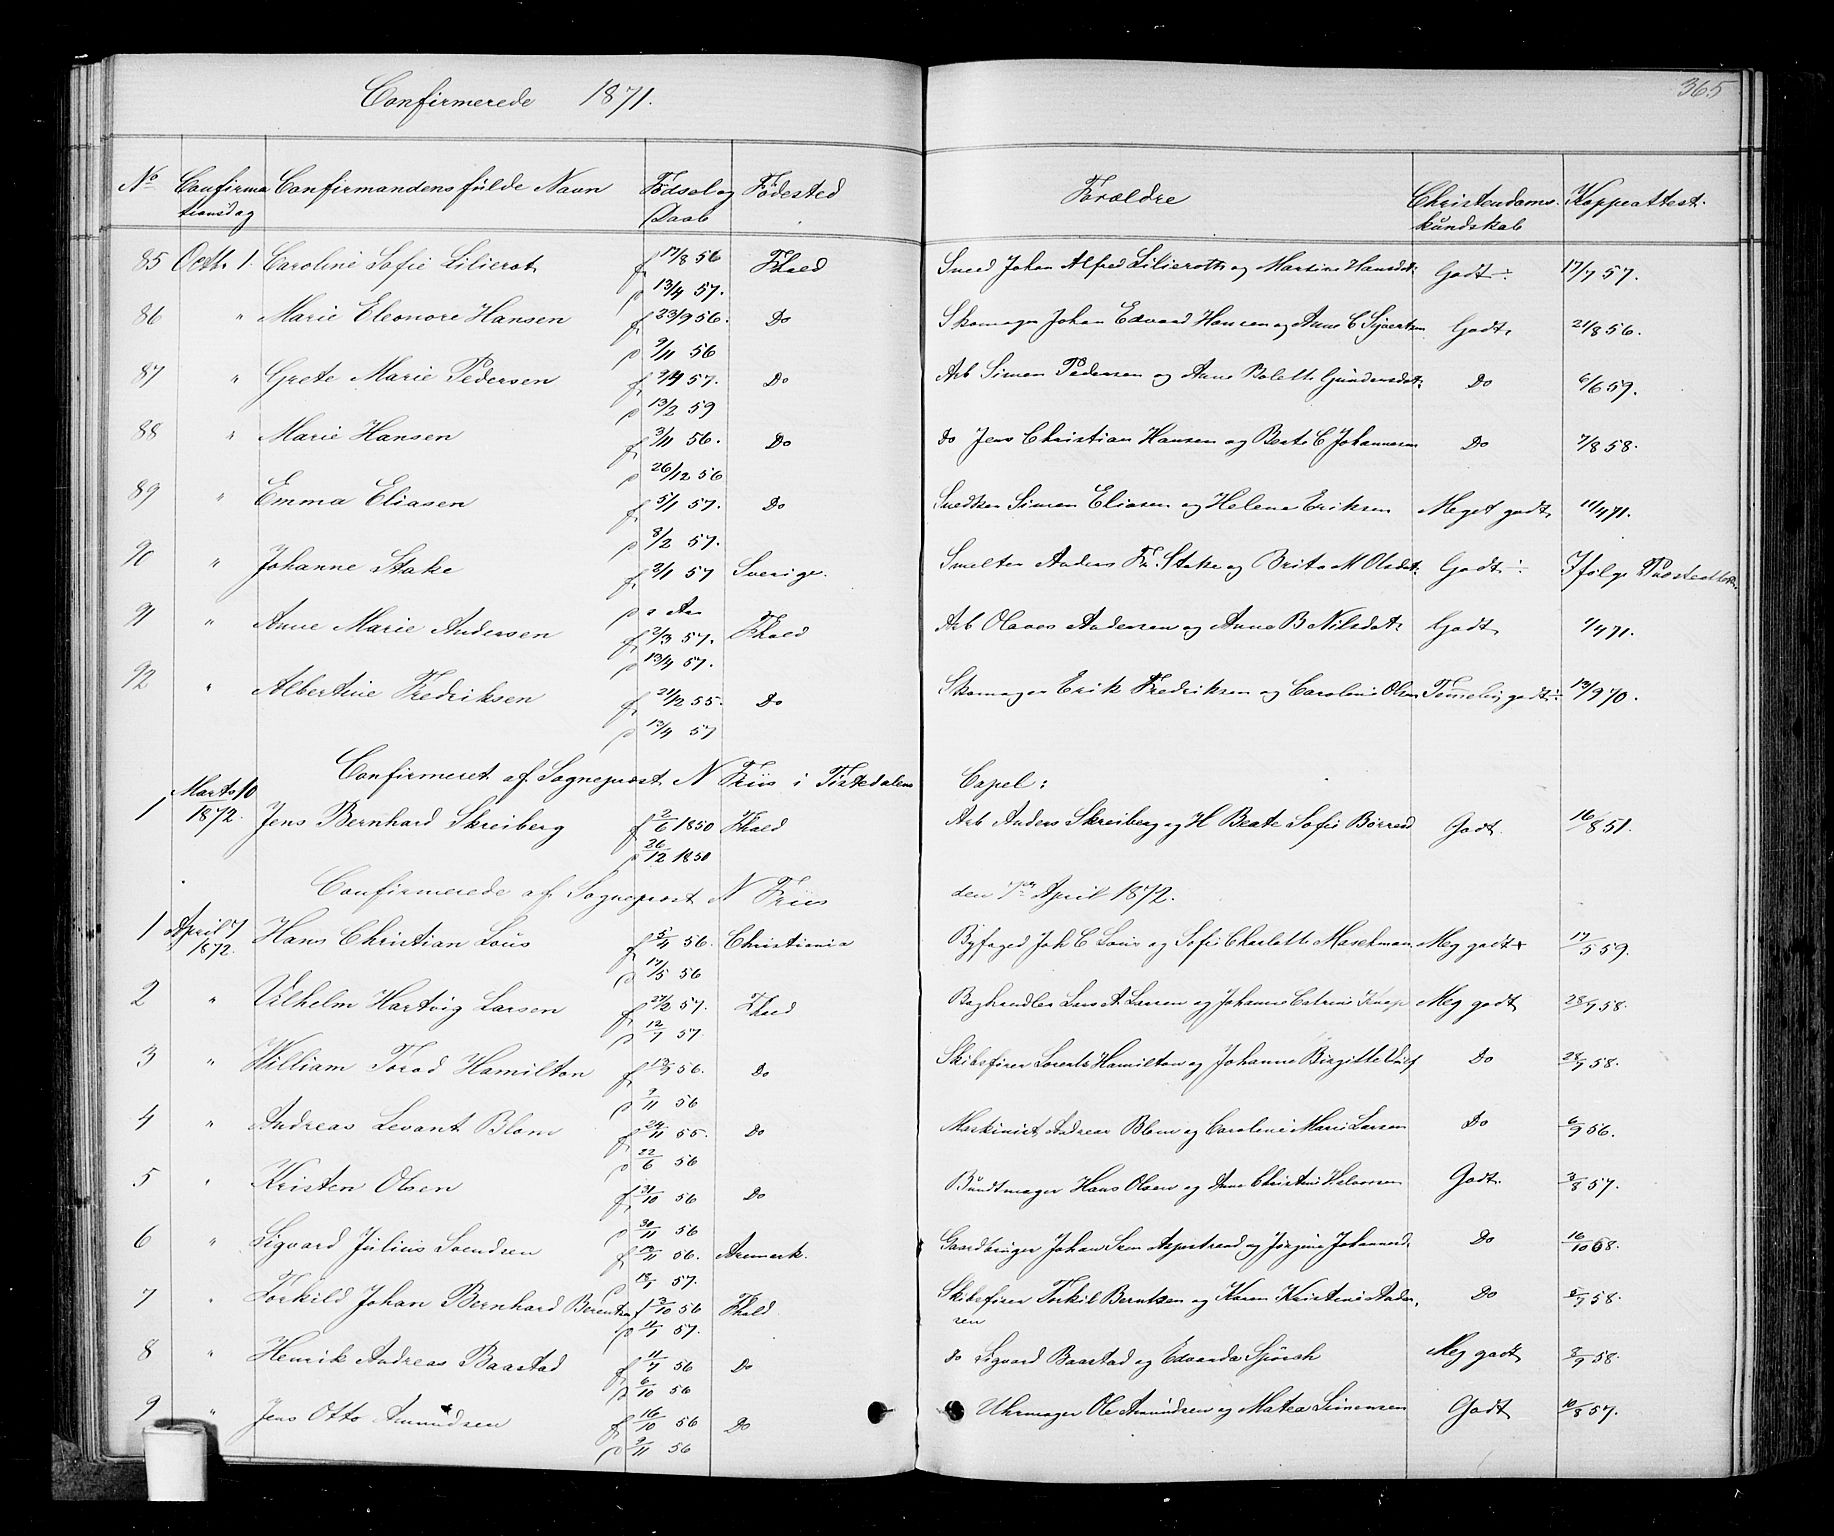 Confirmerede 1871.
365
No Confirma Confirmandens fulde Navn Fødsel og Fødested Forældre Christendoms- Koppeattest.
tionsdag Daab kundskab
85 Octbr 1. Caroline Sofie Lilierot f 17/8 56 Fhald Smed Johan Alfred Lilieroth og Martine Hansdt: Godt ÷ 17/7 57.
d 13/4 57.
86 " Marie Eleonore Hansen f 23/9 56. Do Skomager Johan Edvard Hansen og Anne C Syvertsen Godt 21/8 56.
d 9/11 56
87 " Grete Marie Pedersen f 2/4 57. Do Arb Simen Pedersen og Anne Bolette Gundersdt: Do 6/6 59.
d 13/2 59
88 " Marie Hansen f 3/11 56. Do Do Jens Christian Hansen og Beate C Johannesen Do 7/8 58.
d 26/12 56
89 " Emma Eliasen f 5/1 57. Do Snedker Simen Eliasen og Helene Eriksen Meget godt 11/4 71.
d 8/2 57.
90 " Johanne Stake f 2/1 57 Sverige. Smelter Anders Fr. Stake og Brita M Olsdt: Godt ÷ Ifølge
d s Aa
91 " Anne Marie Andersen f 2/3 57. Fhald Arb Olaves Andersen og Anne B Nilsdat: Godt 1/4 71.
d 13/4 57.
92 " Albertine Fredriksen f 21/12 55. Do Skomager Erik Fredriksen og Caroline Olsen Temmelig godt ÷ 13/9 70.
d 13/4 57
Confirmeret af Sogneprest N Friis i Tistedalens Capel:
1 Marts 10 1872. Jens Bernhard Skreiberg f 2/6 1850 Fhald Arb Anders Skreiberg og H Beate Sofie Børresd Godt. 16/8 51.
d 26/12 1850
Confirmerede af Sogneprest N Friis den 7de April 1872.
1 April 7 1872. Hans Christian Lous f 5/4 56. Christiania Byfoged Joh C Lous og Sofie Charlotte Maschman Meg godt 17/5 59.
d 17/5 56
2 " Vilhelm Hartvig Larsen f 27/2 57. Fhald Boghandler Lars A. Larsen og Johanne Catrine Knap Meg godt 28/9 58.
d 12/7 57
3 " William Torod Hamilton f 13/5 56. Do Skibsfører Lorents Hamilton og Johanne Birgitte Do 28/9 58.
d 9/11 56
4 " Andreas Levant Blom f 24/11 55. Do Maskinist Andreas Blom og Caroline Marie Larsen Do 6/9 56.
d 22/6 56
5 " Kristen Olsen f 31/10 56 Do Bundtmager Hans Olsen og Ane Christine Godt. 3/8 57.
d 30/11 56
6 " Sigvard Julius Svendsen f 12/11 56. Aremark. Gaardbruger Johan Aspestrand og Jørgine Johannesd. Do 16/10 68.
d 18/1 57.
7 " Torkild Johan Bernhard Berentsen f 2/10 56 Fhald Skibsfører Torkil Berntsen og Karen Kristine Ander- Do 8/9 58.
d 11/1 57. sen
8 " Henrik Andreas Baastad f 11/7 56 Do do Sigvard Baastad og Edvarda Spørch Meg godt 8/9 58.
d 6/10 56
9 " Jens Otto Amundsen f 16/10 56 Do Uhrmager Ole Amundsen og Matea Simensen Godt 10/8 57.
d 9/11 56